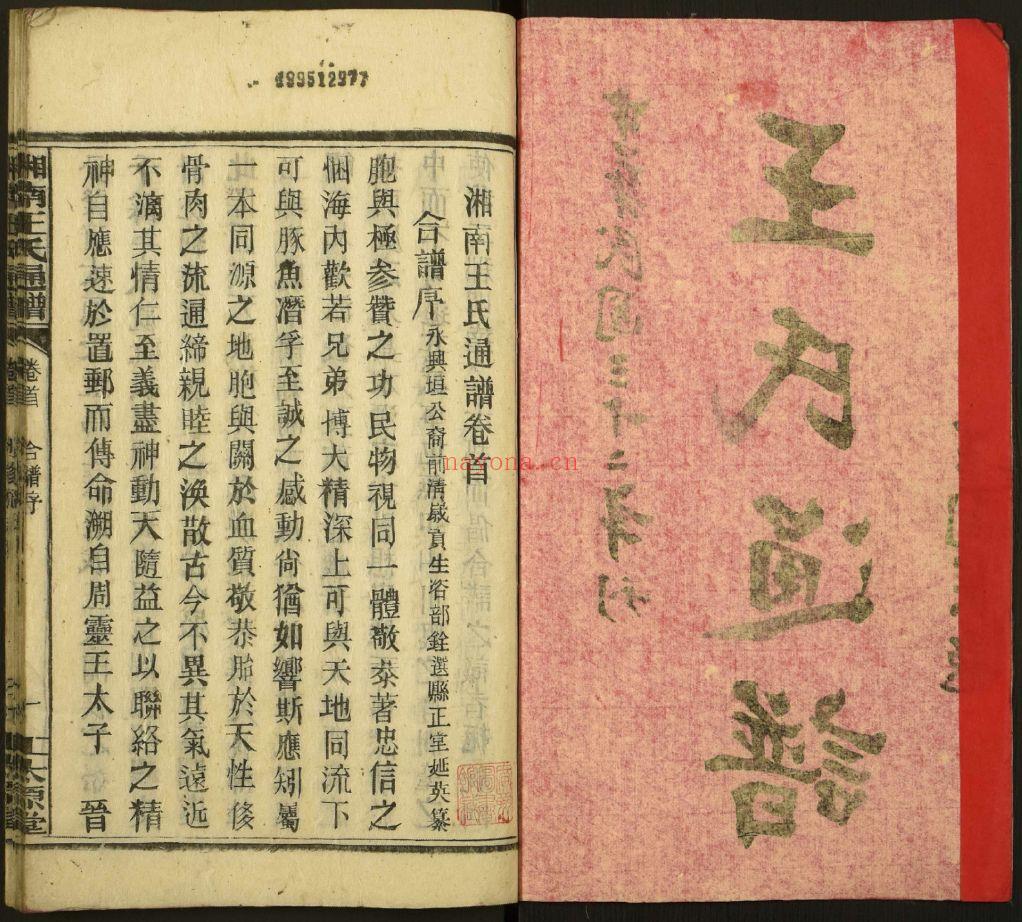 王氏通譜
中華民國三十二年刊
湘南王氏通譜卷首
合譜序 永興垣公裔前清歲貢生咨部銓選縣正堂延英纂
胞與極參贊之功民物視同一體敬恭著忠信之
悃海內歡若兄弟博大精深上可與天地同流下
可與豚魚潛孚至誠之感動尙猶如響斯應矧屬
一本同源之地胞與關於血質敬恭胎於天性
骨肉之流通締親睦之渙散古今不異其氣遠近
不漓其情仁至義盡神動天隨益之以聯絡之精
神自應速於置郵而傳命溯自周靈王太子 晉
湘南王氏通譜 卷首 合譜序 一 太原堂
nayona.cn